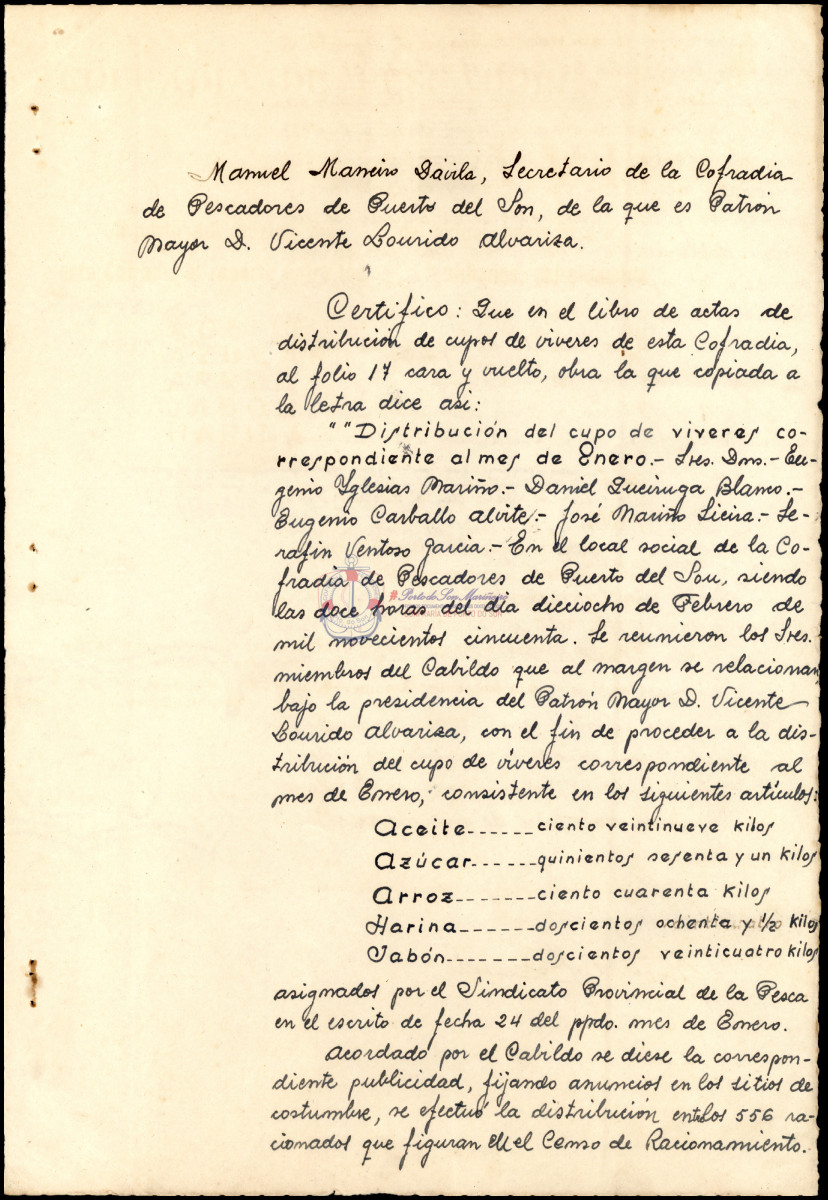 Manuel Maneiro Dávila, Secretario de la Cofradia
de Pescadores de Puerto del Son, de la que es Patrón
Mayor D. Vicente Lourido Alvariza.
Certifico: Que en el libro de actas de
distribución de cupos de viveres de esta Cofradia,
al folio 17 cara y vuelto, obra la que copiada a
la letra dice asi:
""Distribución del cupo de viveres co-
rrespondiente al mes de Enero.- Sres. Dns.- Eu-
genio Yglesias Mariño.- Daniel Queiruga Blanco.-
Eugenio Carballo Alvite.- José Mariño Sieira.- Se-
rafin Ventoso Garcia.- En el local social de la Co-
fradia de Pescadores de Puerto del Son, siendo
las doce horas del dia dieciocho de Febrero de
mil novecientos cincuenta. Se reunieron los Sres.
miembros del Cabildo que al margen se relacionan
bajo la presidencia del Patrón Mayor D. Vicente
Lourido Alvariza, con el fin de proceder a la dis-
tribución del cupo de víveres correspondiente al
mes de Enero, consistente en los siguientes artículos:
Aceite------ciento veintinueve kilos
Azúcar------quinientos sesenta y un kilos
Arroz-------ciento cuarenta kilos
Harina------doscientos ochenta y 1/2 kilos
Jabón-------doscientos veinticuatro kilos
asignados por el Sindicato Provincial de la Pesca
en el escrito de fecha 24 del ppdo. mes de Enero.
Acordado por el Cabildo se diese la correspon-
diente publicidad, fijando anuncios en los sitios de
costumbre, se efectuó la distribución entre los 556 ra-
cionados que figuran en el Censo de Racionamiento.
#Porto do Son Mariñeiro